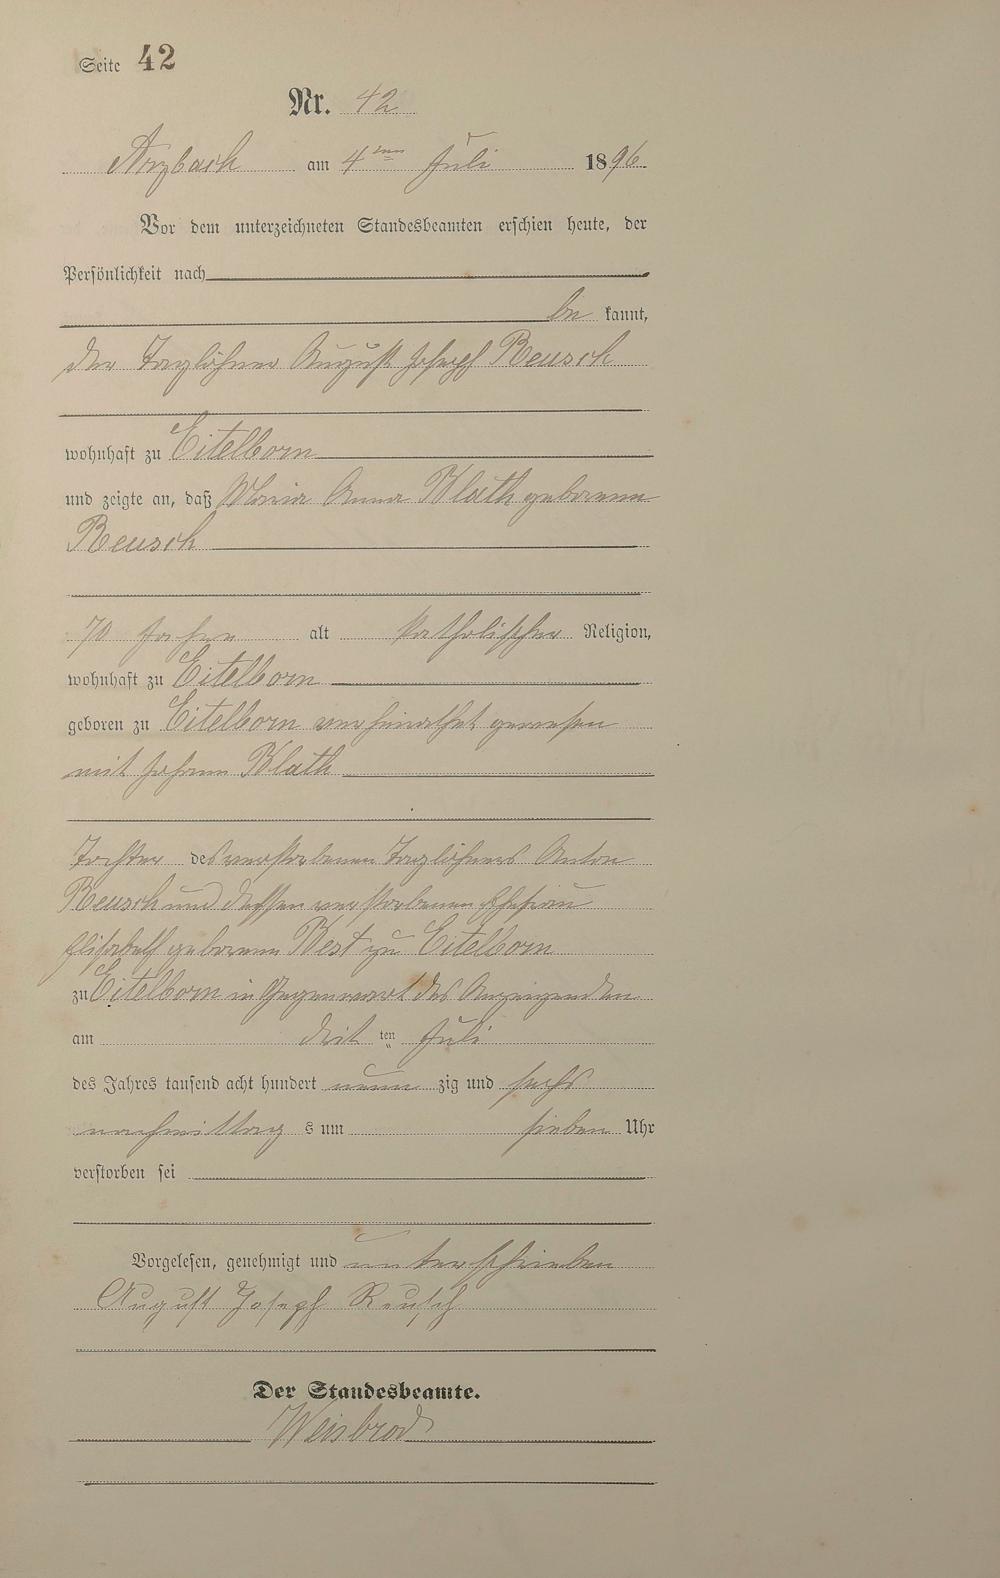 Seite 42
Nr. 42
Arzbach am 4ten Juli 1896.
Vor dem unterzeichneten Standesbeamten erschien heute, der
Persönlichkeit nach
be kannt,
der Taglöhner August Joseph Reusch
wohnhaft zu Eitelborn
und zeigte an, daß Maria Anna Klath geborene
Reusch
70 Jahre alt katholischer Religion,
wohnhaft zu Eitelborn
geboren zu Eitelborn verheirathet gewesen
mit Johann Klath
Tochter des verstorbenen Taglöhners Anton
Reusch und dessen verstorbenen Ehefrau
Elisabeth geborene Best zu Eitelborn
zu Eitelborn in Gegenwart des Anzeigenden
am drit ten Juli
des Jahres tausend acht hundert neun zig und sechs
nachmittag s um sieben Uhr
verstorben sei
Vorgelesen, genehmigt und unterschrieben
August Joseph Reusch
Der Standesbeamte.
Weisbrod